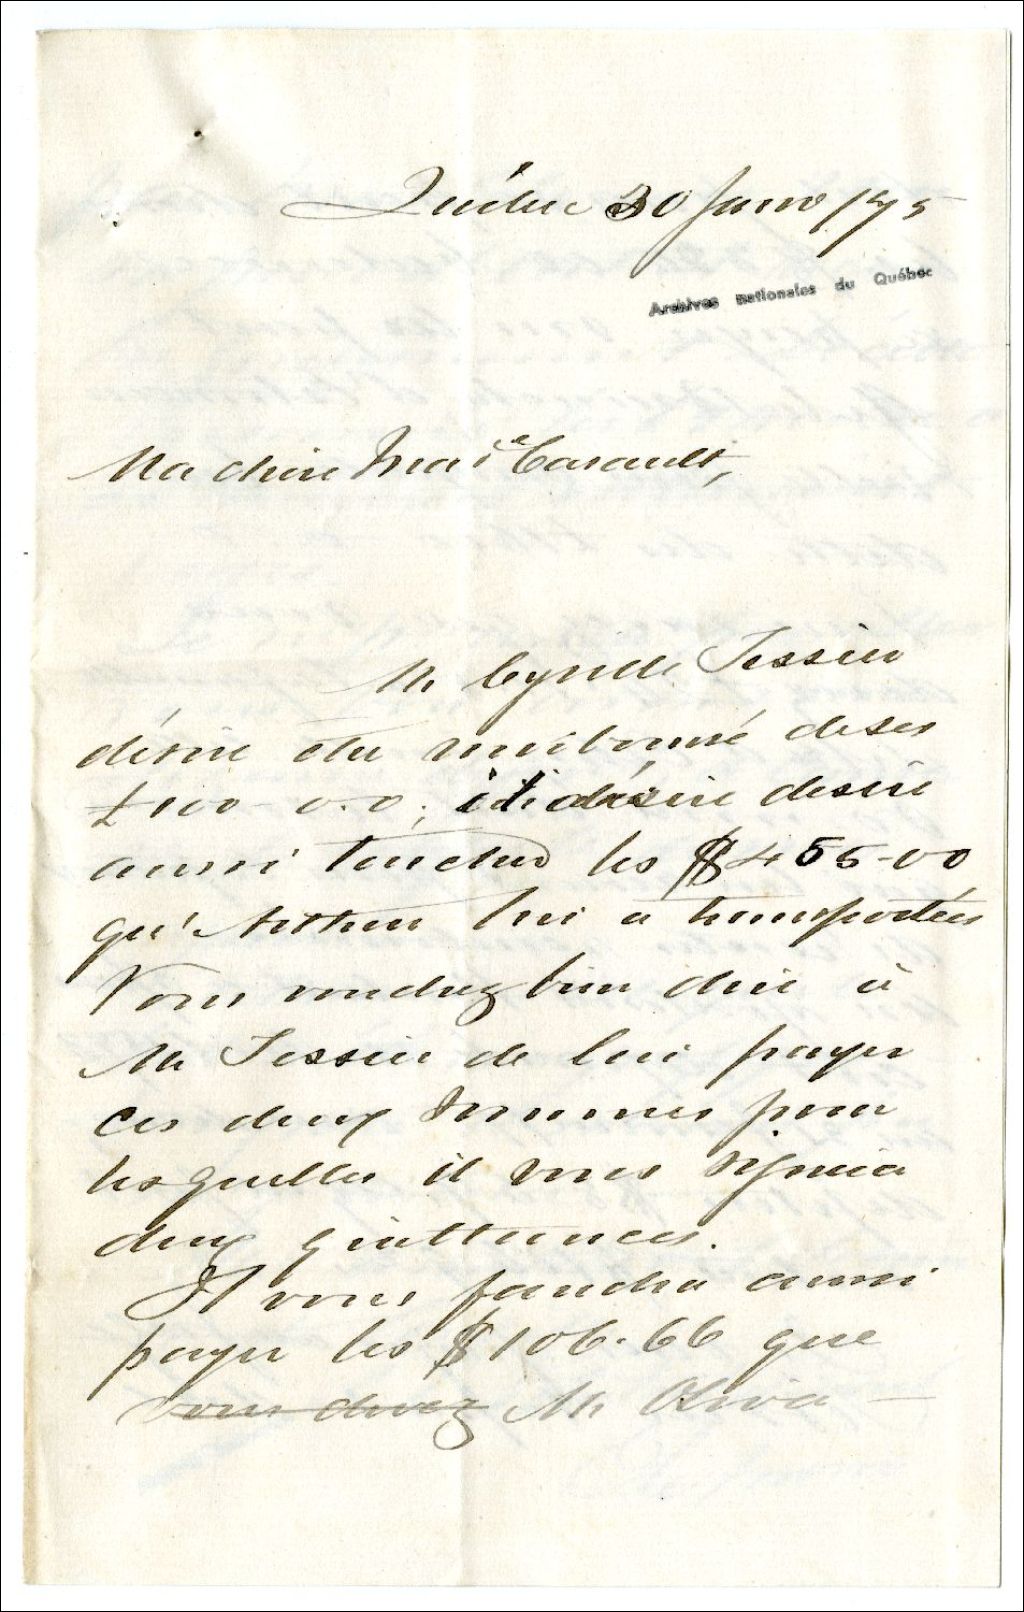 Québec 30 Janv /75
Archives nationales du Québec
Ma chère Mad.e Casault,
M. Cyrille Tessier
désire être remboursé de ses
£100-0.0; désire
aussi toucher les $455-00
qu'Arthur lui a transportées
Vous voudrez bien dire à
M. Tessier de lui payer
ces deux sommes pour
lesquelles il vous signera
deux quittances.
Il vous faudra aussi
payer les $106.66 que
vous devez M. Oliva —